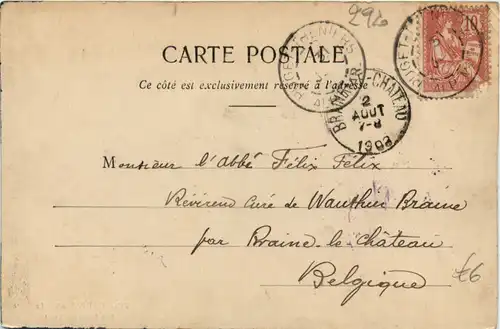 2920
CARTE POSTALE
Ce côté est exclusivement réservé à l'adresse
10
PUGET-THENIERS
BRAINE-LE-CHATEAU
2
AOUT
7-8
1903
Monsieur l'Abbé Félix Félix
Révérend Curé de Wauthier Braine
par Braine-le-Château
Belgique
£6